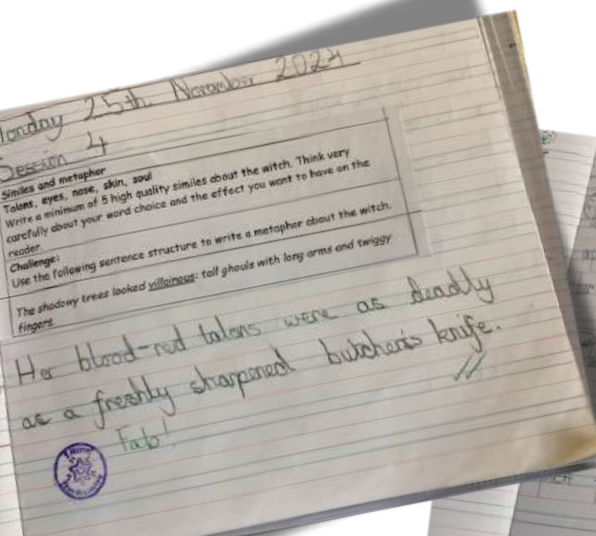 Monday 25th November 2024
Session 4
Similes and metaphor
Talons, eyes, nose, skin, soul
Write a minimum of 5 high quality similes about the witch. Think very
carefully about your word choice and the effect you want to have on the
reader.
Challenge:
Use the following sentence structure to write a metaphor about the witch.
The shadowy trees looked villainous: tall ghouls with long arms and twiggy
fingers.
Her blood-red talons were as deadly
as a freshly sharpened butcher's knife.
Fab!